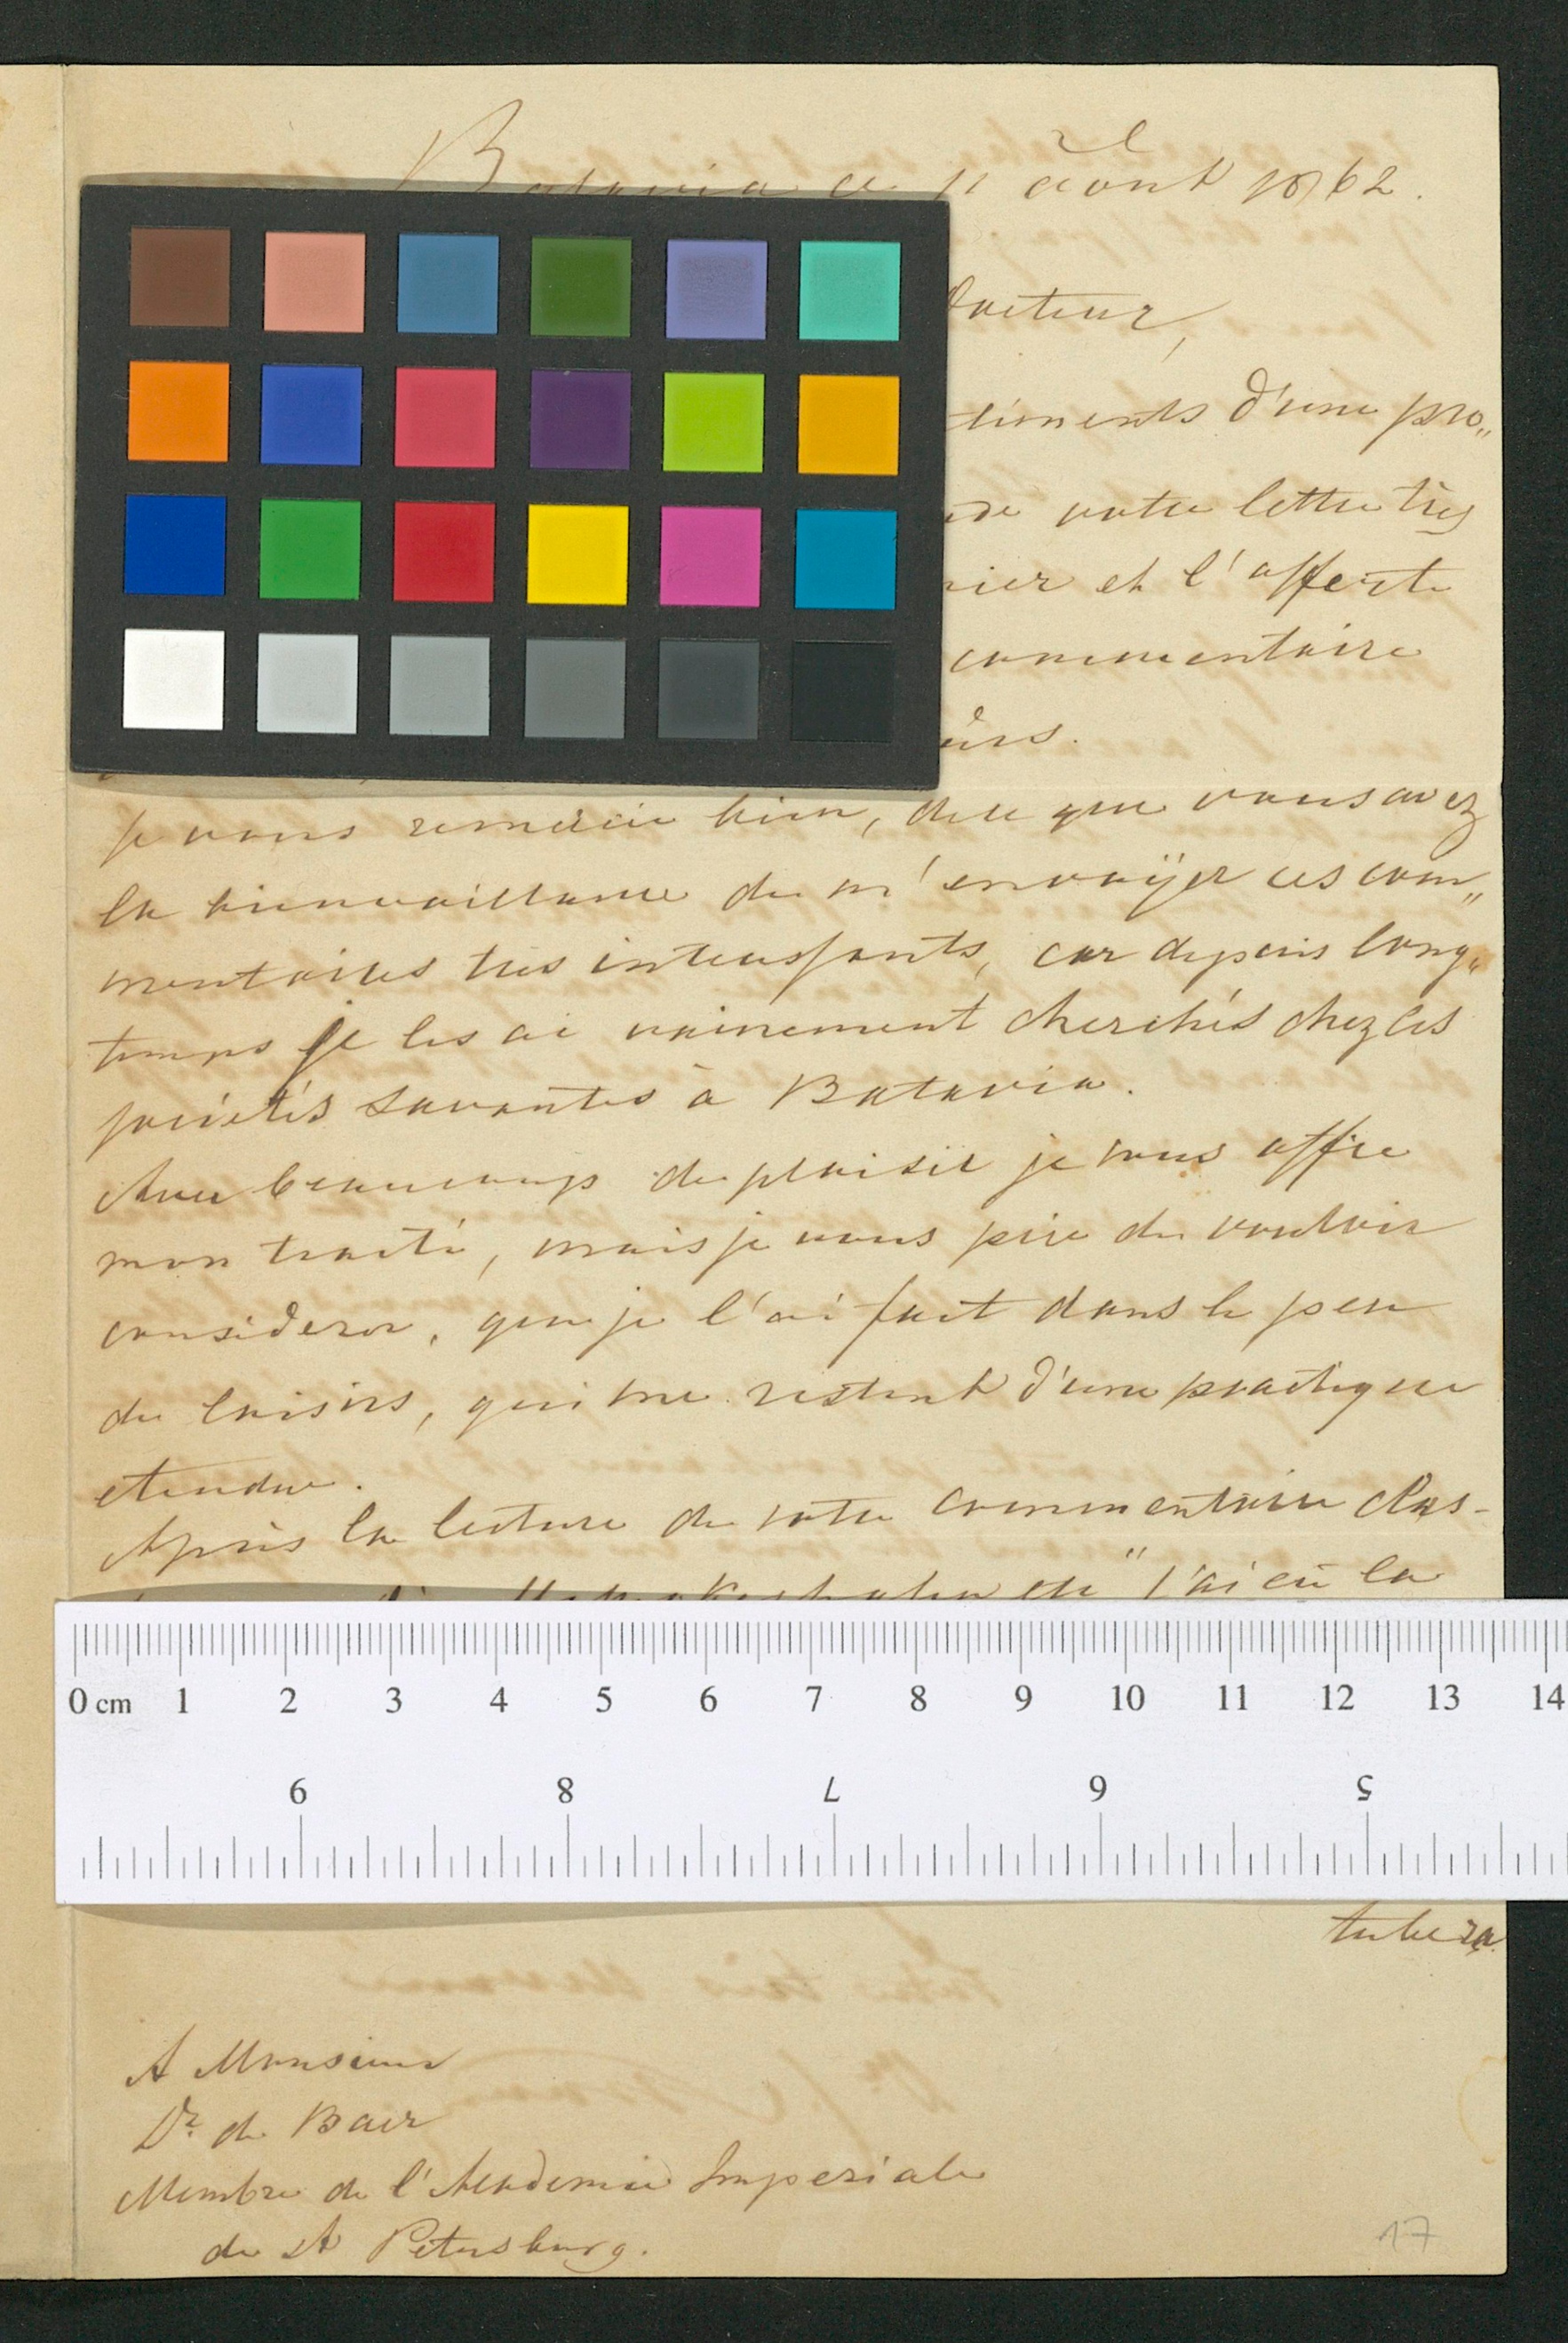 Batavia ce 11 août 1862.
docteur,
timents d'une pro„
votre lettre très
nier et l'offerte
commentaire
eürs.
je vous remercie bien, que vous avez
la bienveillance de m'envoÿer ces com„
mentaires très interessants, car depuis long„
temps je les ai vainement cherchés chez les
societés savantes à Batavia.
Avec beaucoup de plaisir je vous offre
mon traité, mais je vous prie de vouloir
considerer, que je l'ai fait dans le peu
de loisirs, qui me restent d'une practique
etendue.
Après la lecture de votre commentaire das-
etc" j'ai eü la
0 cm 1 2 3 4 5 6 7 8 9 10 11 12 13 14
9 8 7 6 5
tubera
A Monsieur
Dr. de Baer
Membre de l'Academie Imperiale
de St Petersburg.
17